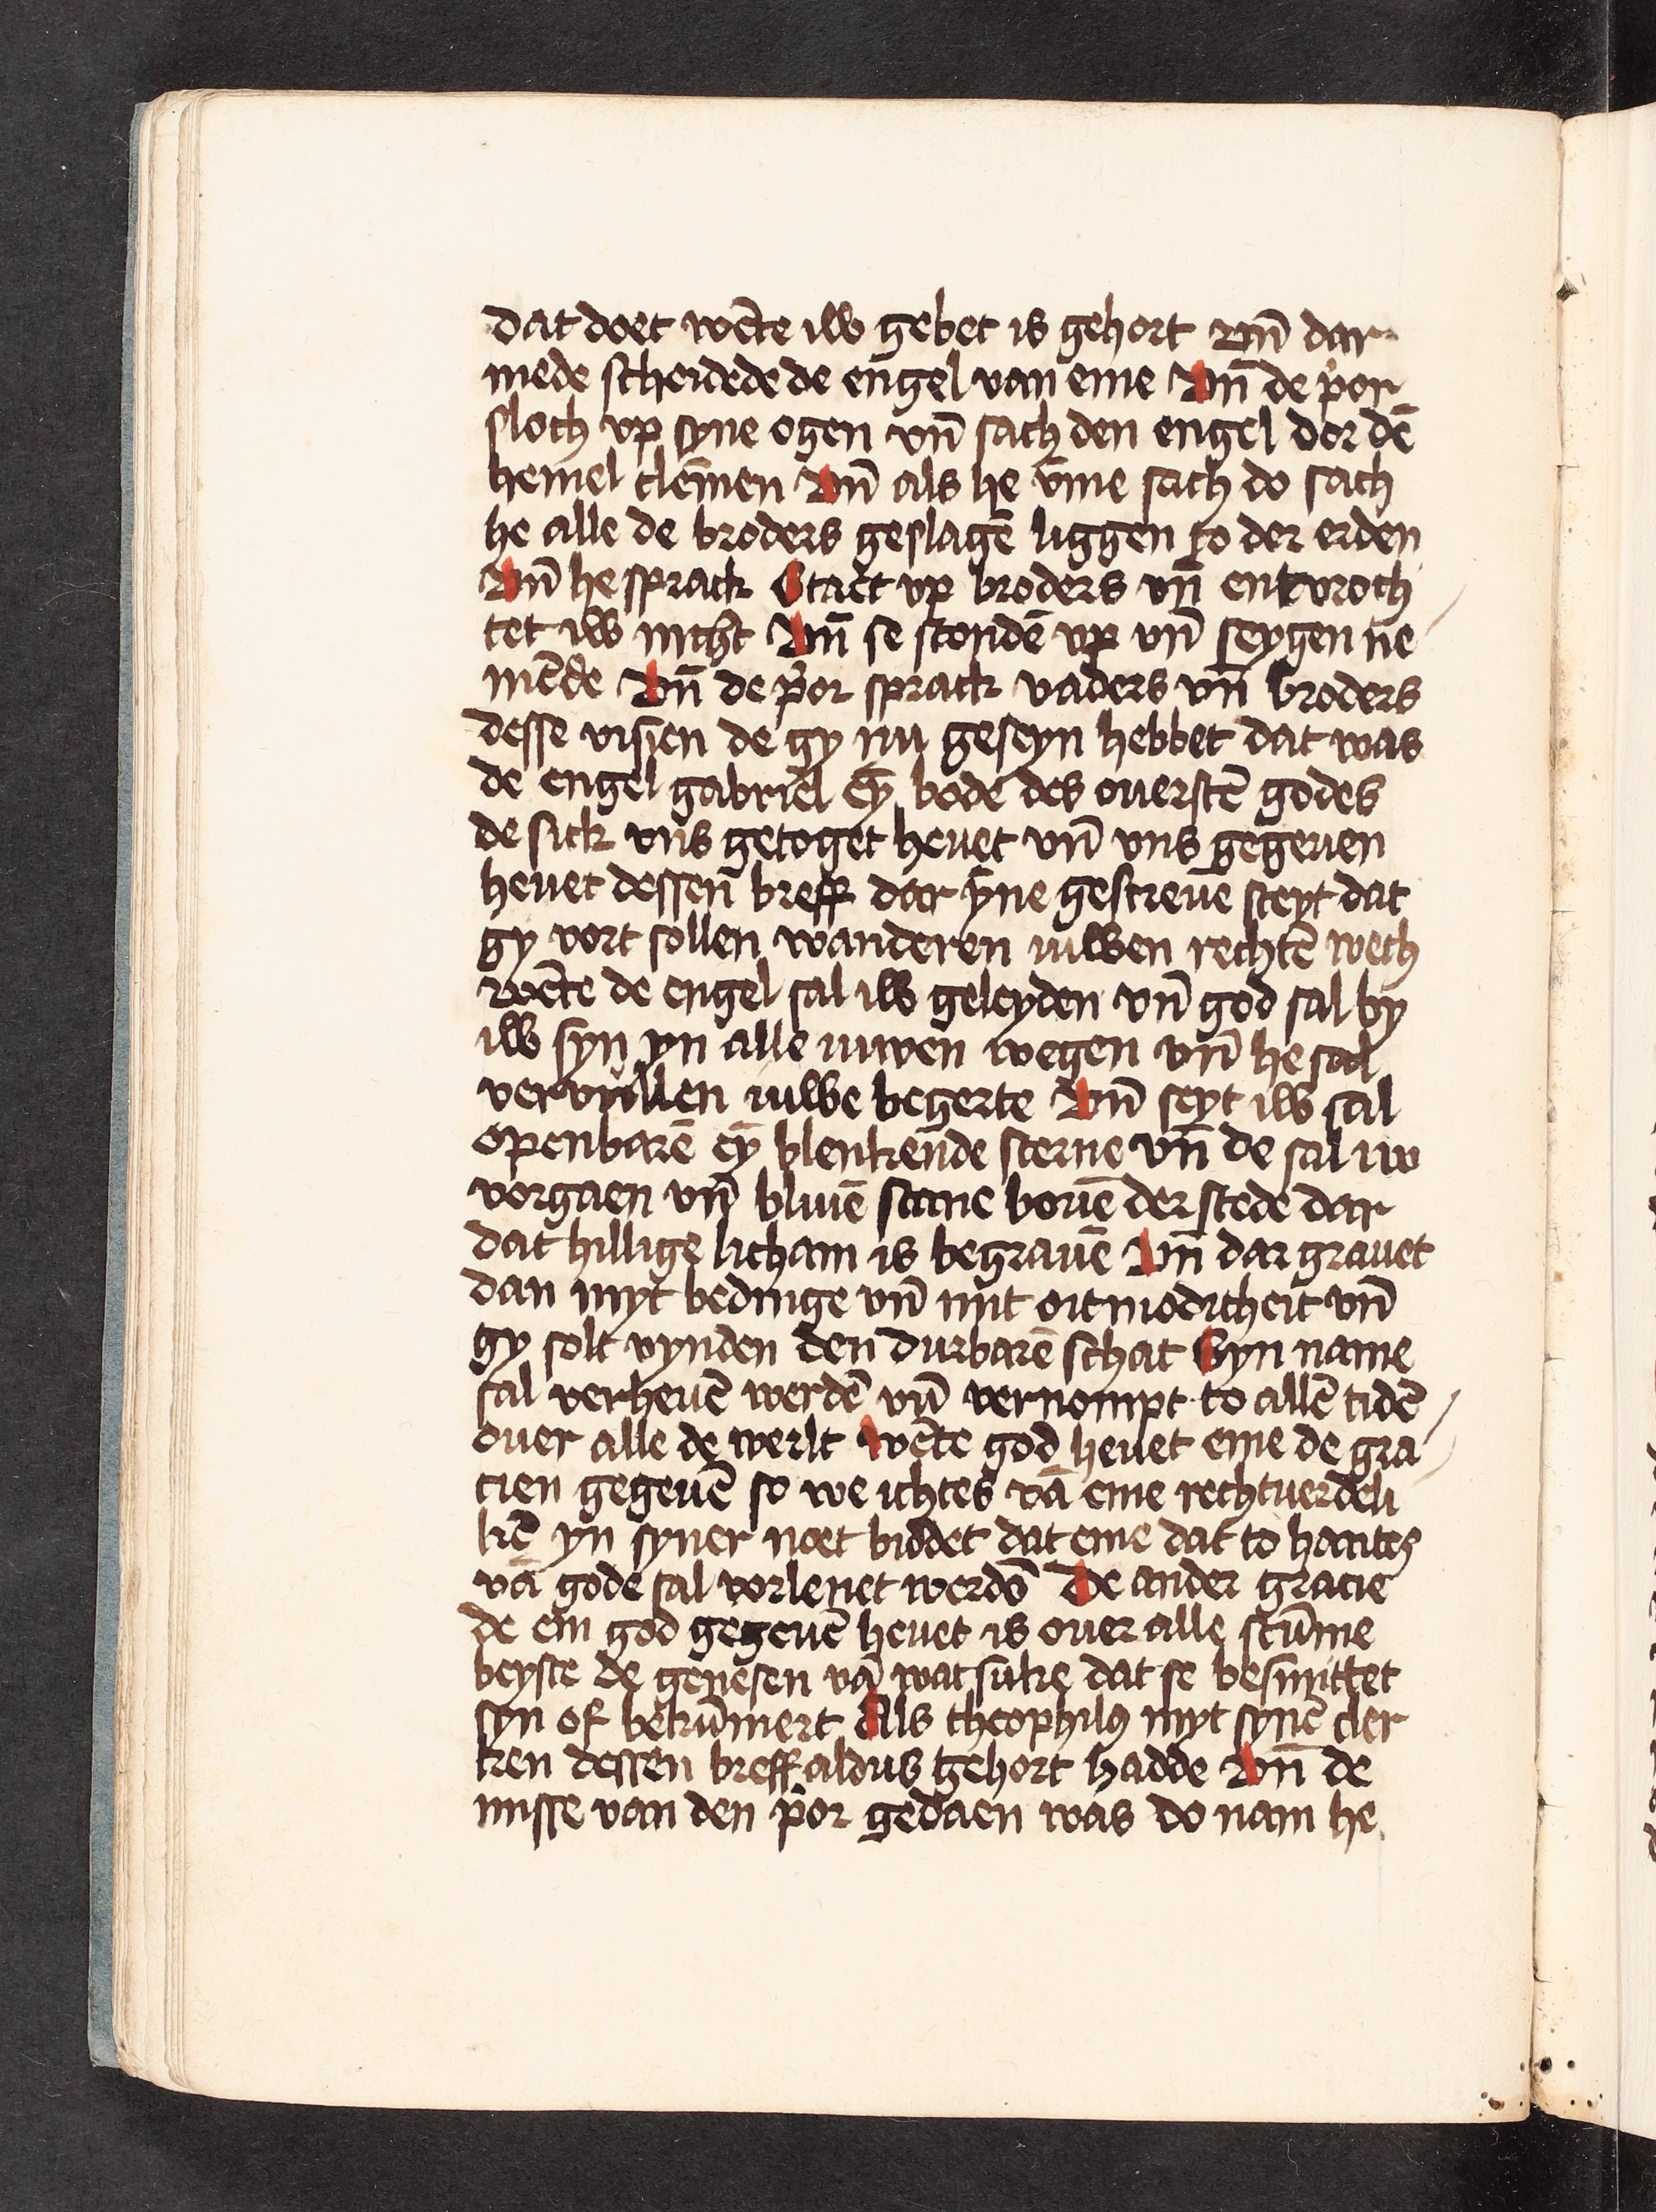 dat doet wēte iw gebet is gehort vn̄ dar
mede scheidede de engel van eme Vn̄ de p̄or
sloch vp syne ogen vn̄ sach den engel dor dē
hemel clēmen Vn̄ als he v̄me sach do sach
he alle de broders geslagē liggen to der erden
Vn̄ he sprack Staet vp broders vn̄ entvroch
tet iw nicht Vn̄ se stondē vp vn̄ seygen ne
mēde Vn̄ de p̄or sprack vaders vn̄ broders
desse visien de gy nu geseyn hebbet dat was
de engel gabriel eȳ bode des ouerstē godes
de sick vns getoget heuet vn̄ vns gegeuen
heuet dessen breff dar ȳne gescreuē steyt dat
gy vort sollen wanderen iuwen rechtē wech
wēte de engel sal iw geleyden vn̄ god sal by
iw syn yn alle iuwen wegen vn̄ he sal
vervullen iuwe begerte Vn̄ seyt iw sal
openbarē eȳ blenkende sterne vn̄ de sal iw
vorgaen vn̄ bliuē stane bouē der stede dar
dat hillige licham is begrauē Vn̄ dar grauet
dan myt bedinge vn̄ mit oitmodicheit vn̄
gy solt vynden den durbarē schat Syn name
sal verheuē werdē vn̄ vernompt to allē tidē
ouer alle de werlt Wēte god heuet eme de gra
cien gegeuē so we ichtes vā eme rechtuerdeli
kē yn syner noet biddet dat eme dat to hantes
vā gode sal vorlenet werdē De ander gracie
de em god gegeuē heuet is ouer alle stūme
beyste de genesen vā wat suke dat se besmittet
syn of bekūmert Als theophilꝰ myt synē cler
ken dessen breff aldus gehort hadde Vn̄ de
misse van den p̄or gedaen was do nam he